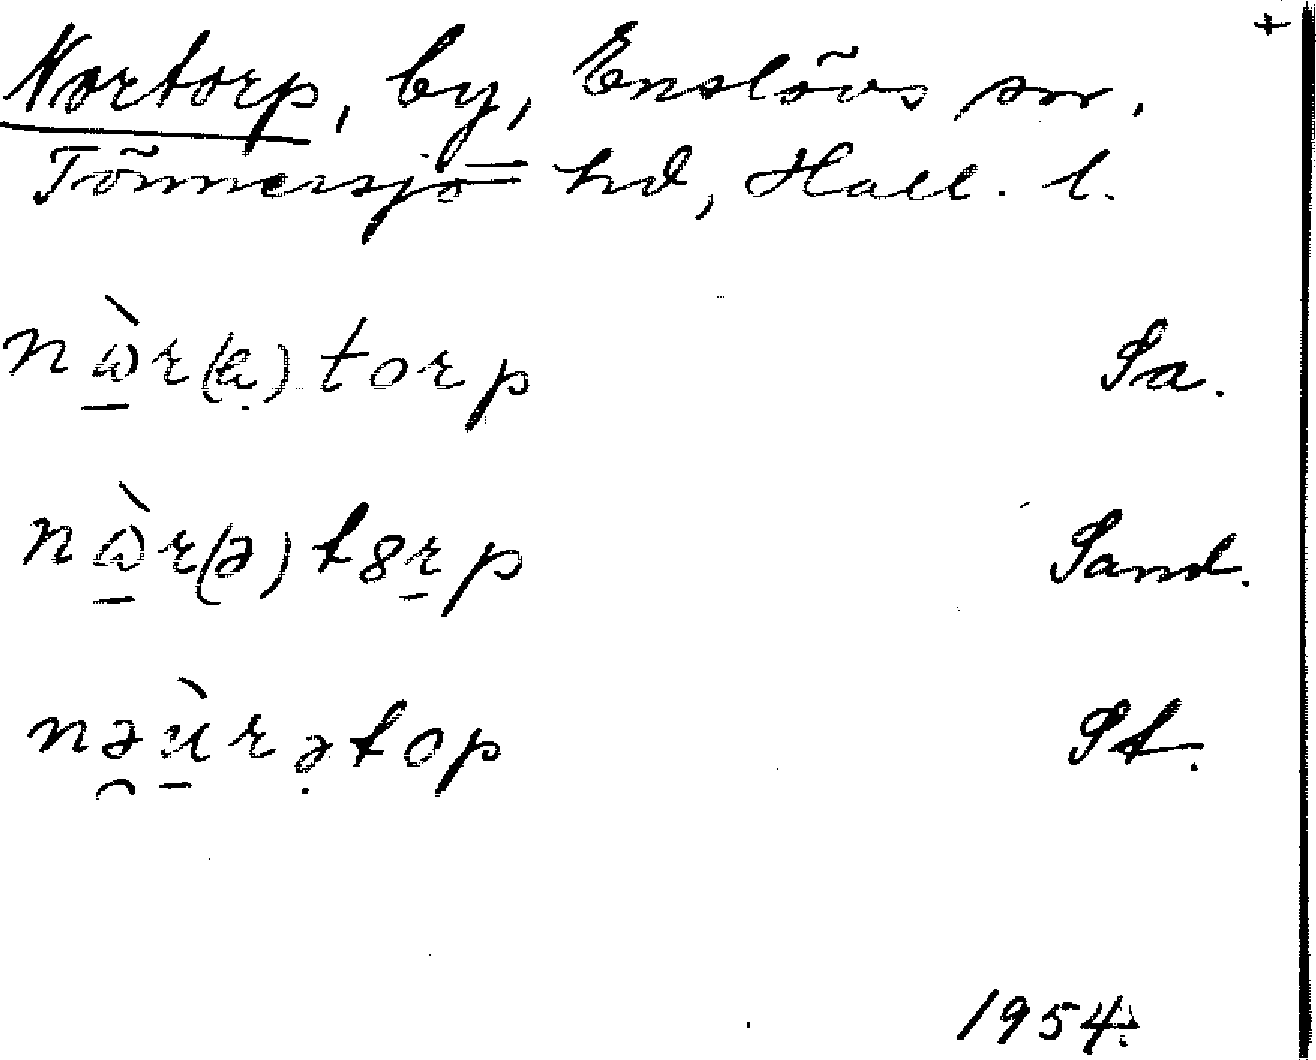 +
Nortorp, by, Enslövs sn.
Tönnersjö hd, Hall. l.
nὼ̲r(ạ)torp Sa.
nὼ̲r(ə)t8r̲p Sand.
nə̯ù̲rə̣top St.
1954.